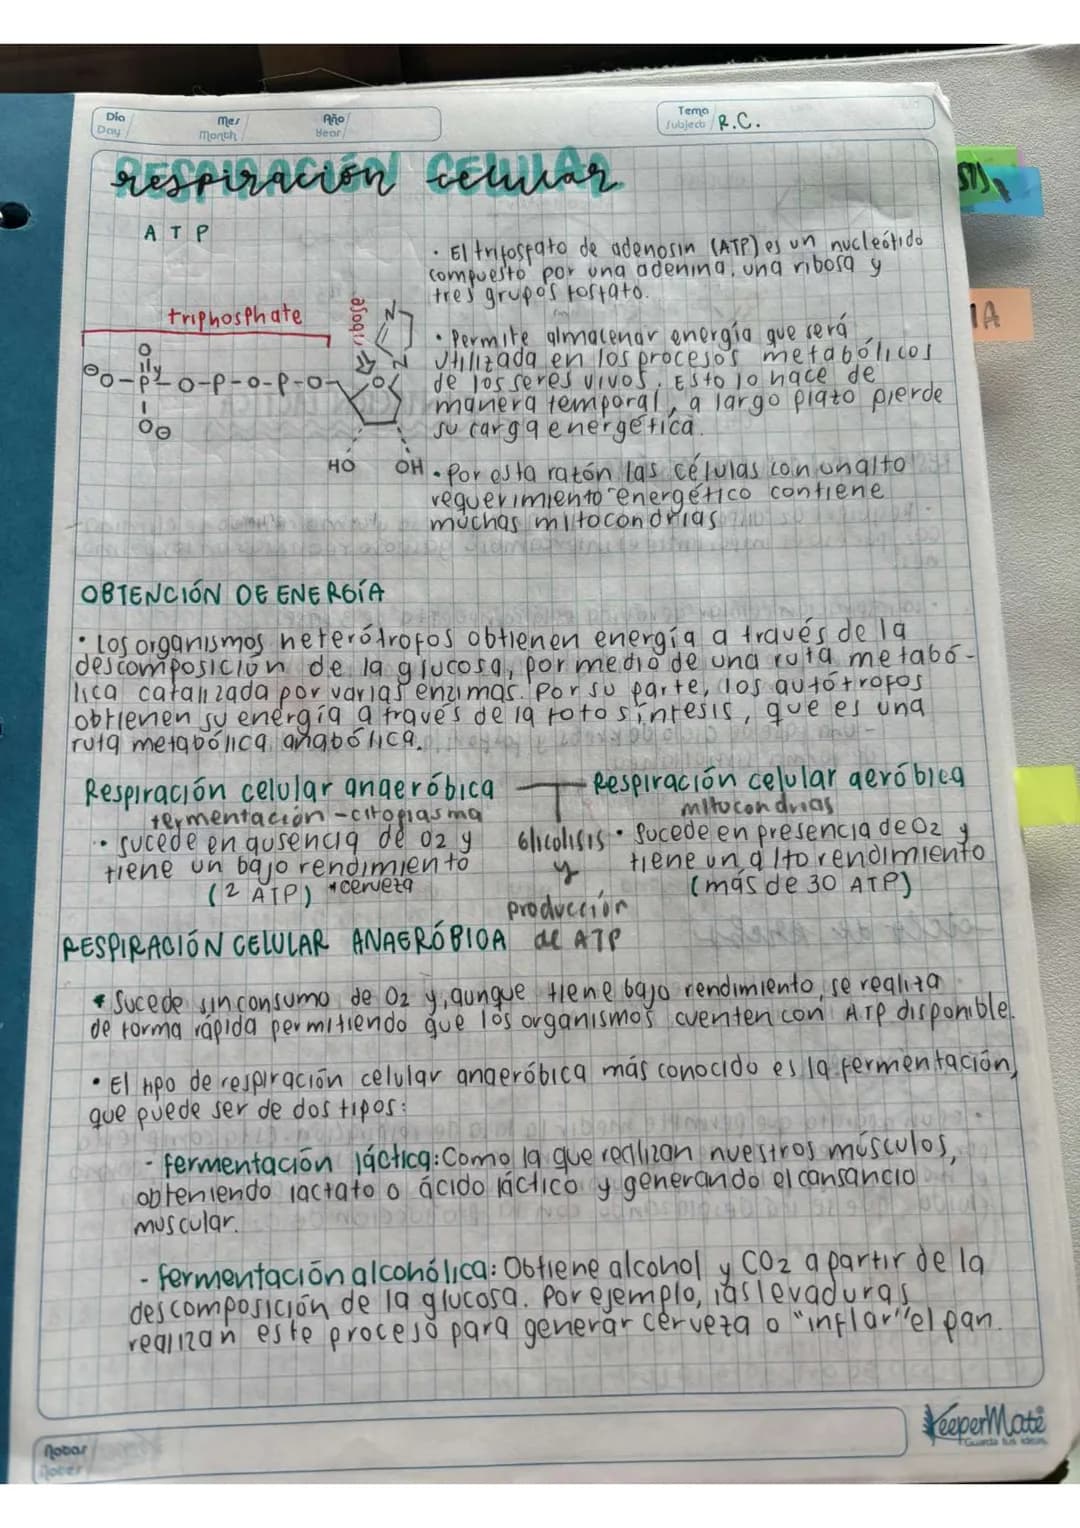 Día
Day
Mes
Month
Año
Year
Tema
Subject
R.C.
RESPIRACIÓN CELULAR
respiración celular
ATP
· El trifosfato de adenosin (ATP) es un nucleótido
compuesto por una adenina, una ribosa y
tres grupos fosfato.
triphosphate
ribose
N
N
O
O-P-O-P-O-P-O
O
O
HO
OH
· Permite almacenar energía que será
utilizada en los procesos metabólicos
de los seres vivos. Esto lo hace de
manera temporal, a largo plazo pierde
su carga energética.
· Por esta razón las células con un alto
requerimiento energético contiene
muchas mitocondrias
OBTENCIÓN DE ENERGÍA
· Los organismos heterótrofos obtienen energía a través de la
descomposición de la glucosa, por medio de una ruta metabó-
lica catalizada por varias enzimas. Por su parte, los autótrofos
obtienen su energía a través de la fotosíntesis, que es una
ruta metabólica anabólica.
Respiración celular anaeróbica
fermentación - citoplasma
· sucede en ausencia de O2 y
tiene un bajo rendimiento
(2 ATP) *cerveza
Glicolisis
y
producción
de ATP
Respiración celular aeróbica
mitocondrias
· Sucede en presencia de O2 y
tiene un alto rendimiento
(más de 30 ATP)
RESPIRACIÓN CELULAR ANAERÓBICA
* Sucede sin consumo de O2 y, aunque tiene bajo rendimiento, se realiza
de forma rápida permitiendo que los organismos cuenten con ATP disponible.
· El tipo de respiración celular anaeróbica más conocido es la fermentación,
que puede ser de dos tipos:
- fermentación láctica: Como la que realizan nuestros músculos,
obteniendo lactato o ácido láctico y generando el cansancio
muscular.
- fermentación alcohólica: Obtiene alcohol y CO2 a partir de la
descomposición de la glucosa. Por ejemplo, las levaduras
realizan este proceso para generar cerveza o "inflar" el pan.
Notas
Notes
KeeperMate
Guarda tus ideas